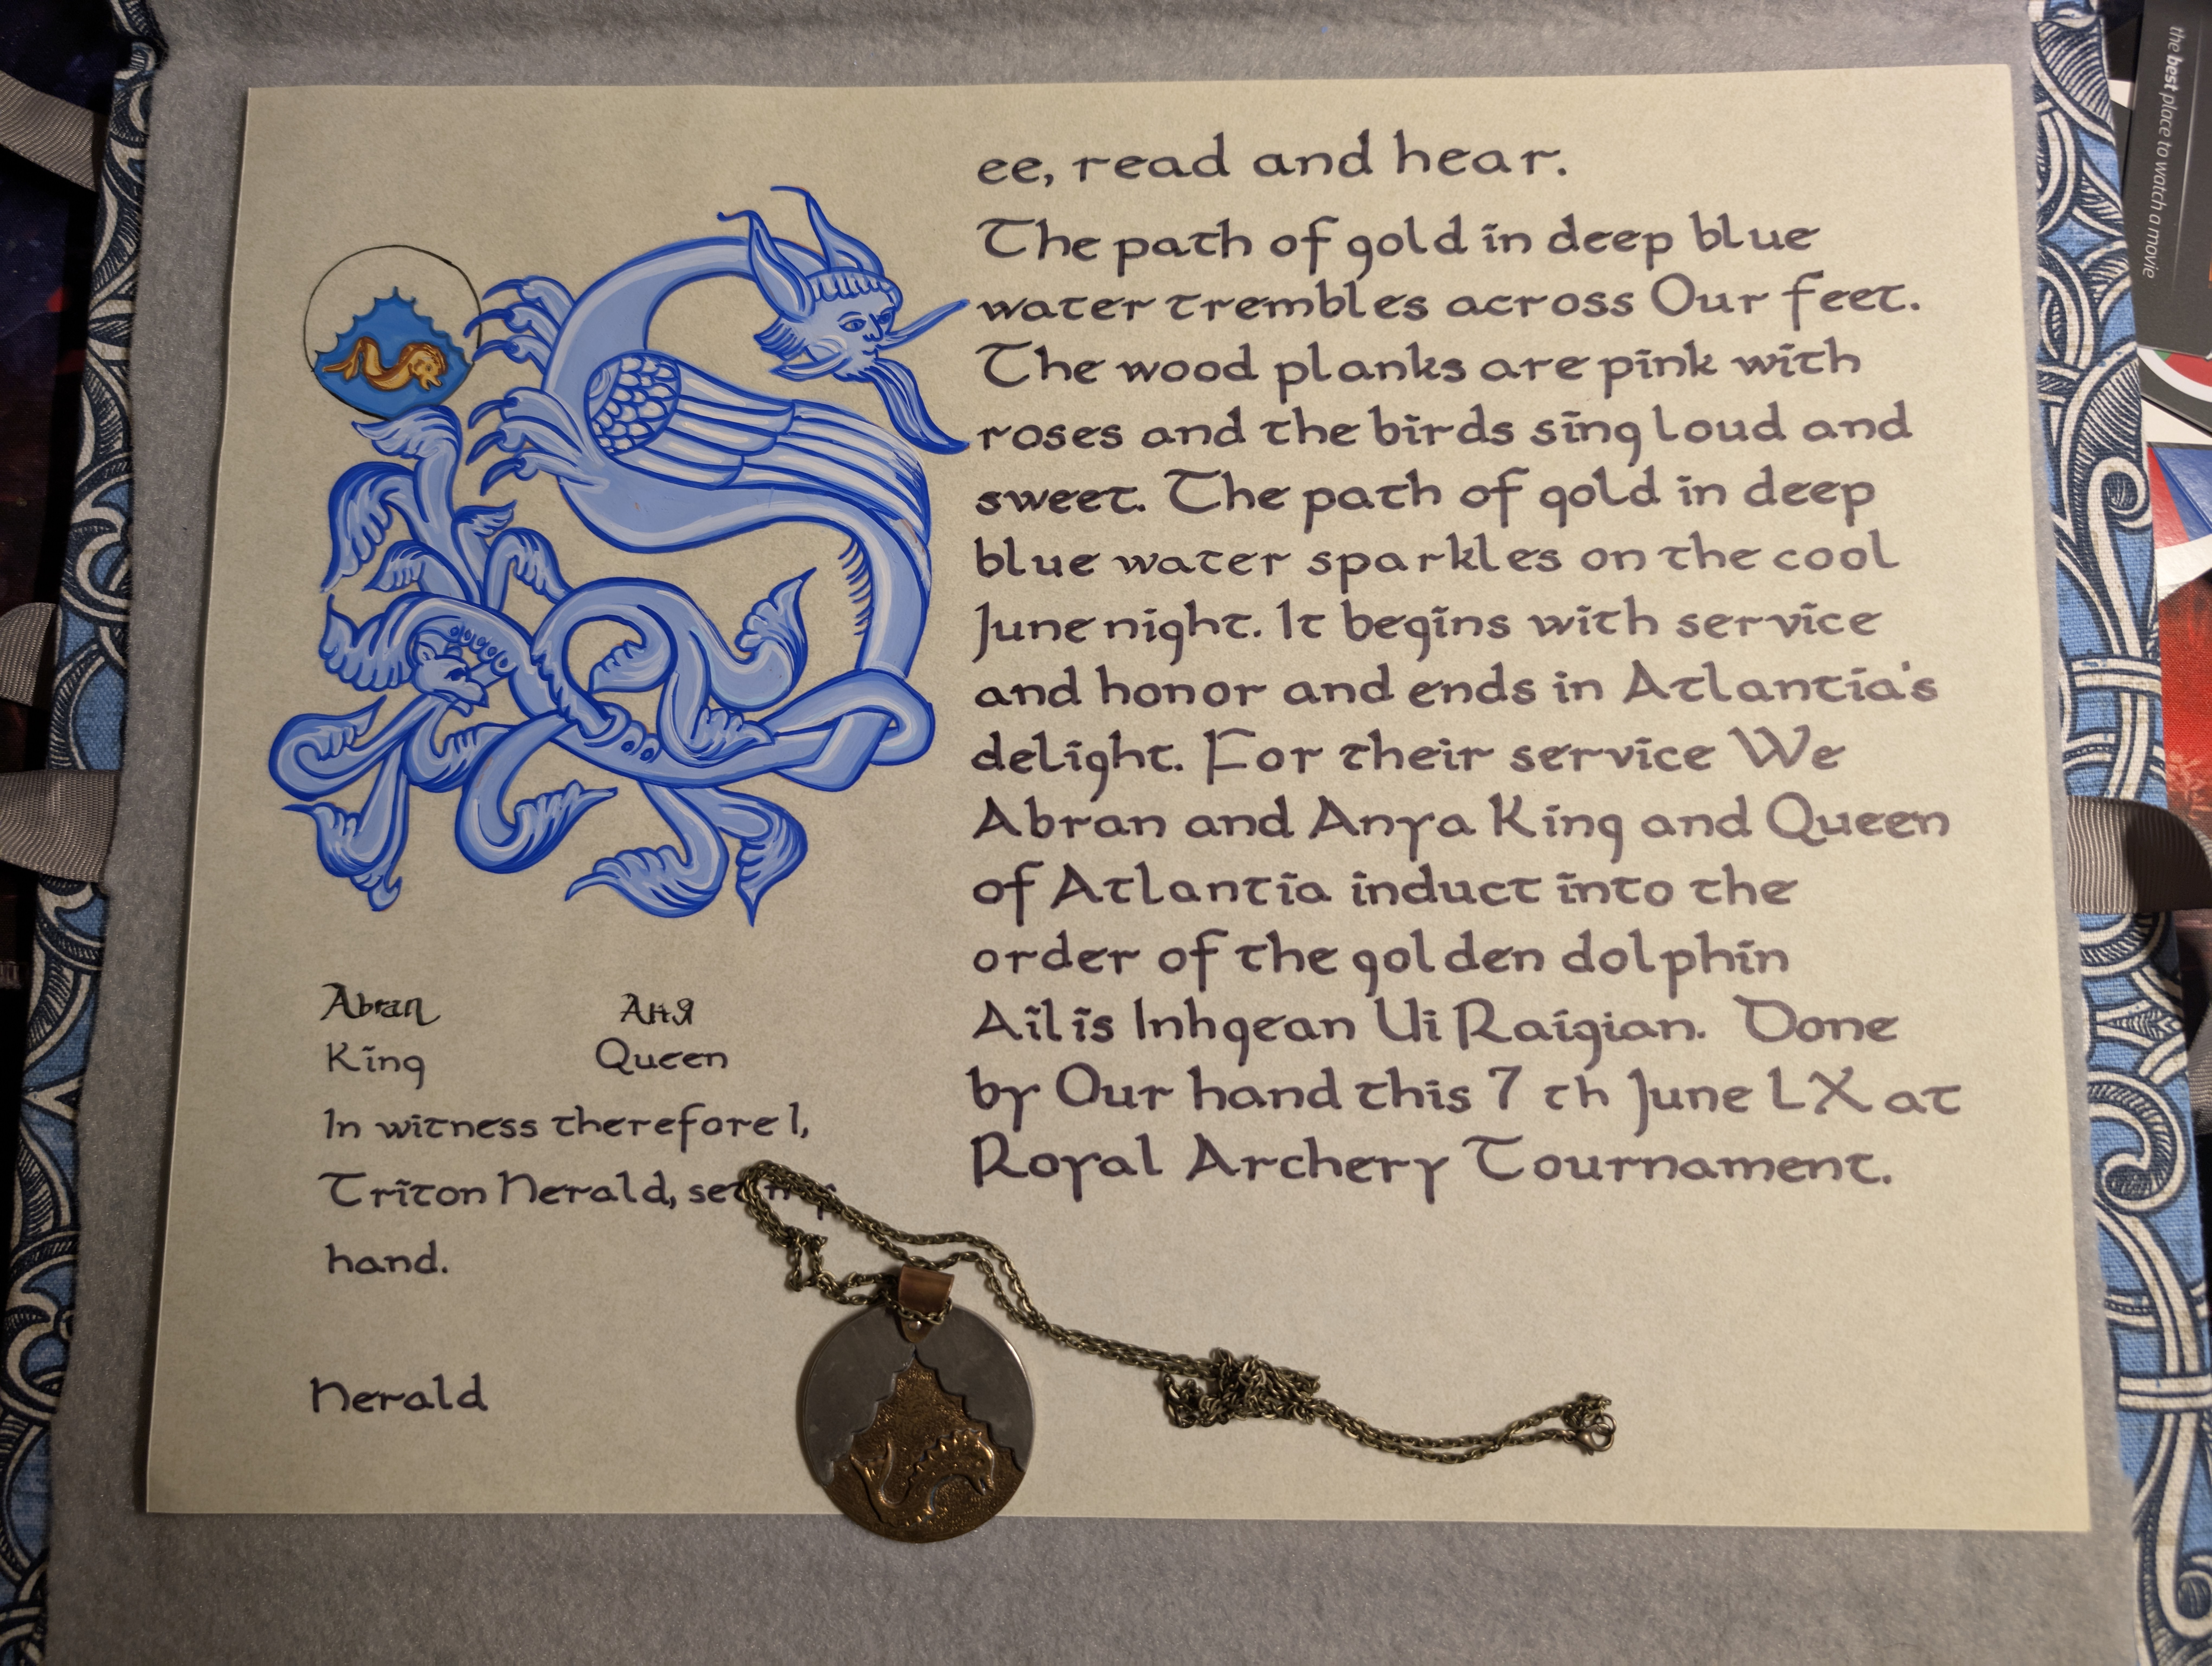 ee, read and hear.
The path of gold in deep blue
water trembles across Our feet.
The wood planks are pink with
roses and the birds sing loud and
sweet. The path of gold in deep
blue water sparkles on the cool
June night. It begins with service
and honor and ends in Atlantia's
delight. For their service We
Abran and Anya King and Queen
of Atlantia induct into the
order of the golden dolphin
Ailis Inhgean Ui Raigian. Done
by Our hand this 7 th June LX at
Royal Archery Tournament.
Abran Аня
King Queen
In witness therefore I,
Triton Herald, set my
hand.
Herald
the best place to watch a movie